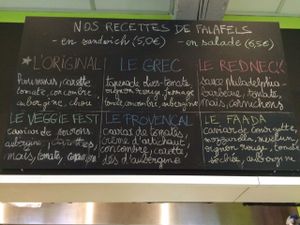 NOS RECETTES DE FALAFELS
- en sandwich (5,0€) - en salade (6,5€)
L'ORIGINAL
houmous, carotte
tomate, concombre
aubergine, chou
LE GREC
tapenade olives-tomate
oignon rouge, fromage
tomate, concombre, aubergine
LE REDNECK
sauce philadelphia-
barbecue, tomate,
maïs, cornichons
LE VEGGIE FEST
caviar de poivrons,
aubergine, carottes,
maïs, tomate,
LE PROVENCAL
caviar de tomates,
crème d'artichaut,
concombre, carotte,
dés d'aubergine
LE FAADA
caviar de courgette,
mozzarella,
oignon rouge, tomate
séchée, aubergine